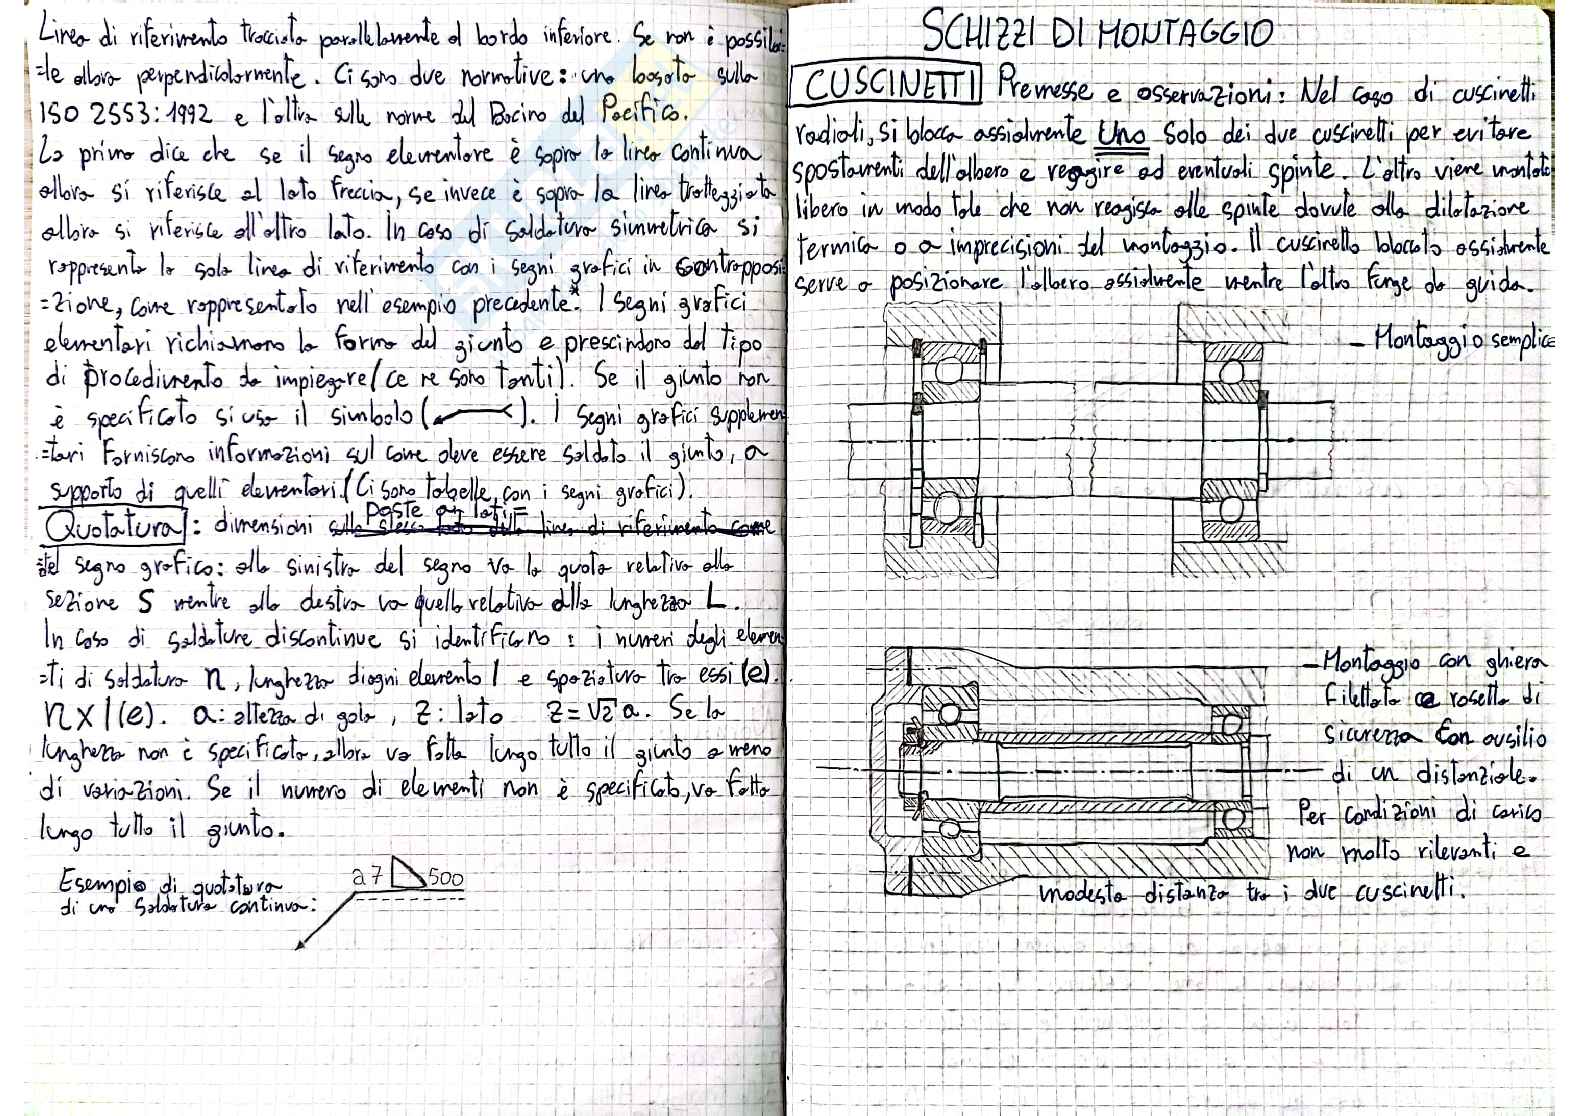 Linea di riferimento tracciata parallelamente al bordo inferiore. Se non è possibi=
=le allora perpendicolarmente. Ci sono due normative: una basata sulla
ISO 2553:1992 e l'altra sulle norme del Bacino del Pacifico.
La prima dice che se il segno elementare è sopra la linea continua
allora si riferisce al lato freccia, se invece è sopra la linea tratteggiata
allora si riferisce all'altro lato. In caso di saldatura simmetrica si
rappresenta la sola linea di riferimento con i segni grafici in contrapposi
=zione, come rappresentato nell'esempio precedente.* I segni grafici
elementari richiamano la forma del giunto e prescindono dal tipo
di procedimento da impiegare (ce ne sono tanti). Se il giunto non
è specificato si usa il simbolo ( ). I segni grafici supplemen
=tari forniscono informazioni sul come deve essere saldato il giunto, a
supporto di quelli elementari. (Ci sono tabelle, con i segni grafici).
Quotatura: dimensioni poste ai lati=
del segno grafico: alla sinistra del segno va la quota relativa alla
sezione S mentre alla destra va quella relativa alla lunghezza L.
In caso di saldature discontinue si identificano: i numeri degli elemen
=ti di saldatura n, lunghezza di ogni elemento l e spaziatura tra essi (e).
n x l (e). a: altezza di gola, z: lato z=√2 a. Se la
lunghezza non è specificata, allora va fatta lungo tutto il giunto a meno
di variazioni. Se il numero di elementi non è specificato, va fatta
lungo tutto il giunto.
Esempio di quotatura
di una saldatura continua:
a7 500
SCHIZZI DI MONTAGGIO
CUSCINETTI Premesse e osservazioni: Nel caso di cuscinetti
radiali, si blocca assialmente Uno solo dei due cuscinetti per evitare
spostamenti dell'albero e reagire ad eventuali spinte. L'altro viene montato
libero in modo tale che non reagisca alle spinte dovute alla dilatazione
termica o a imprecisioni del montaggio. Il cuscinetto bloccato assialmente
serve a posizionare l'albero assialmente mentre l'altro funge da guida.
- Montaggio semplice
- Montaggio con ghiera
filettata e rosetta di
sicurezza con ausilio
di un distanziale.
Per condizioni di carico
non molto rilevanti e
modesta distanza tra i due cuscinetti.